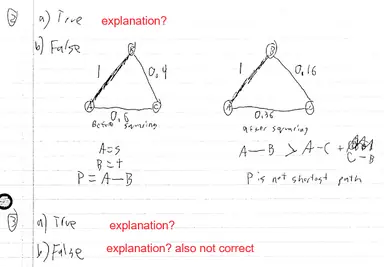 ② a) True explanation?
b) False
B B
1 0.4 1 0.16
A C A C
0.6 0.36
Before squaring after squaring
A=s A—B > A-C + C-B
B=t
P=A—B P is not shortest path
③ a) True explanation?
b) False explanation? also not correct